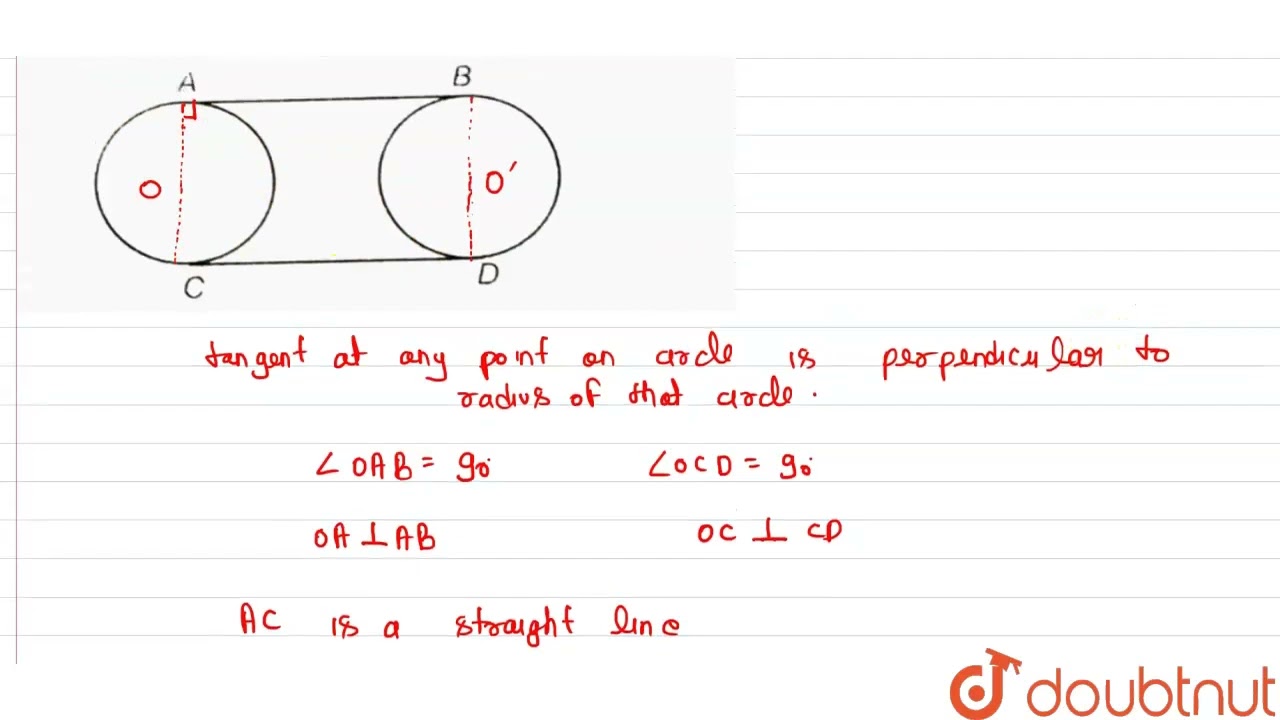 A B
O O′
C D
tangent at any point on circle is perpendicular to
radius of that circle.
∠OAB = 90° ∠OCD = 90°
OA ⊥ AB OC ⊥ CD
AC is a straight line
doubtnut